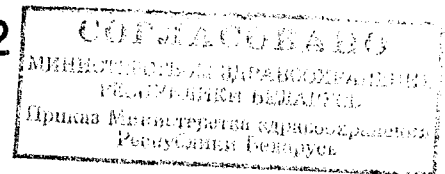 2
СОГЛАСОВАНО
МИНИСТЕРСТВОМ ЗДРАВООХРАНЕНИЯ
РЕСПУБЛИКИ БЕЛАРУСЬ
Приказ Министерства здравоохранения
Республики Беларусь